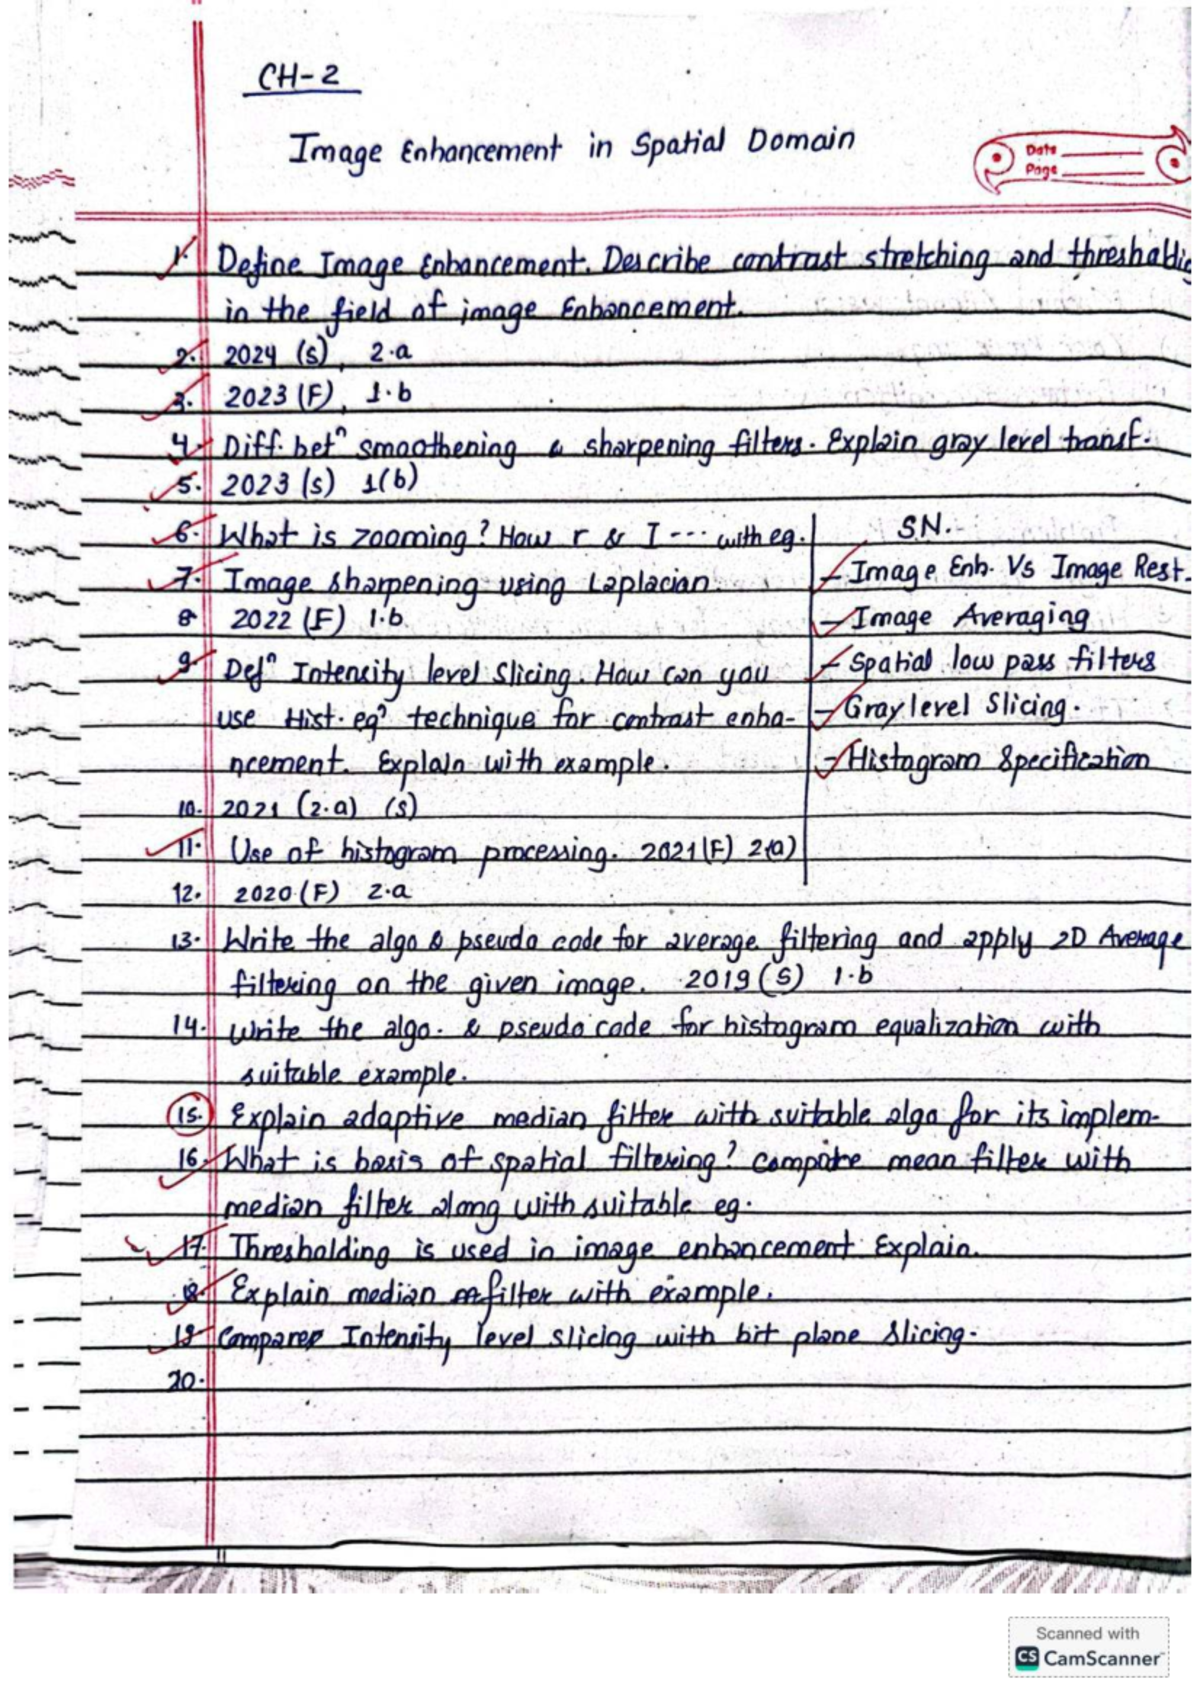 CH-2
Image Enhancement in Spatial Domain
Date
Page
1. Define Image Enhancement. Describe contrast stretching and thresholding
in the field of image Enhancement.
2. 2024 (S) 2.a
3. 2023 (F) 1.b
4. Diff. betⁿ smoothening & sharpening filters. Explain gray level transf.
5. 2023 (S) 1(b)
6. What is zooming? How r & I --- with eg.
7. Image sharpening using Laplacian.
8. 2022 (F) 1.b
9. Defⁿ Intensity level Slicing. How can you
use Hist. eqⁿ technique for contrast enha-
ncement. Explain with example.
10. 2021 (2.a) (S)
11. Use of histogram processing. 2021(F) 2(a)
S.N.
- Image Enh. Vs Image Rest.
- Image Averaging
- Spatial low pass filters
- Gray level Slicing.
- Histogram Specification
12. 2020 (F) 2.a
13. Write the algo & pseudo code for average filtering and apply 2D Average
filtering on the given image. 2019 (S) 1.b
14. Write the algo. & pseudo code for histogram equalization with
suitable example.
15. Explain adaptive median filter with suitable algo for its implem-
16. What is basis of spatial filtering? compare mean filter with
median filter along with suitable eg.
17. Thresholding is used in image enhancement Explain.
18. Explain median filter with example.
19. Compare Intensity level slicing with bit plane Slicing.
20.
Scanned with
CS CamScanner